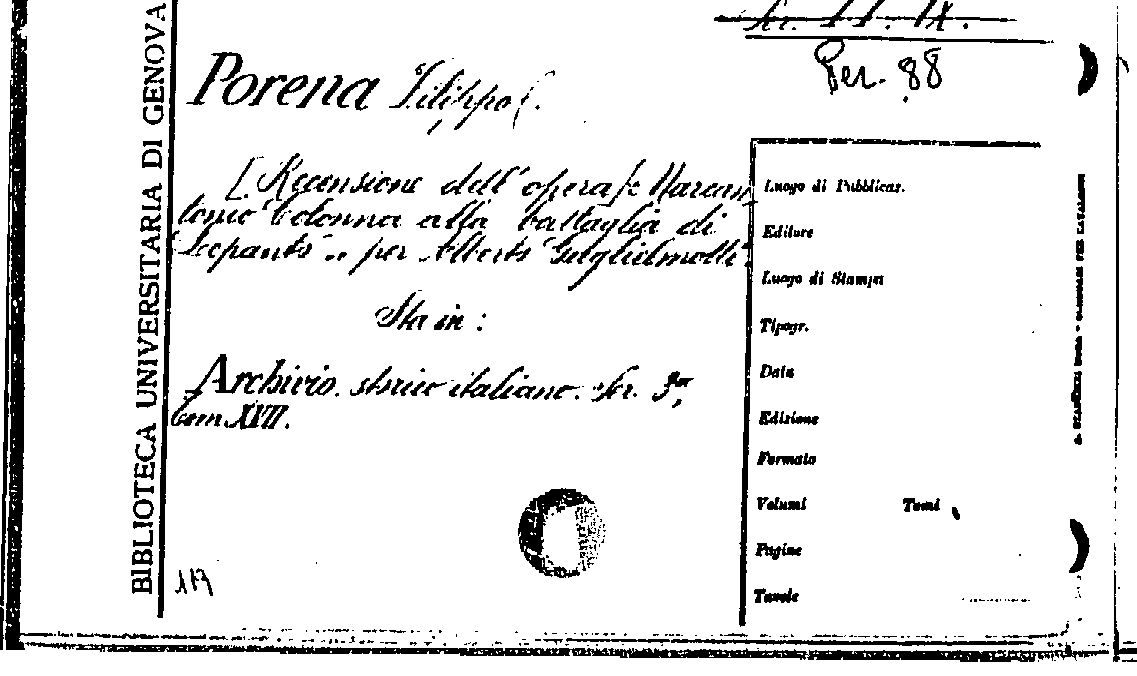 BIBLIOTECA UNIVERSITARIA DI GENOVA
Per. 88
Porena Filippo.
[Recensione dell'opera: Marcan
tonio Colonna alla battaglia di
Lepanto" per Alberto Guglielmotti
Sta in:
Archivio storico italiano. Ser. 3ª,
Tom. XVII.
117
Luogo di Pubblicaz.
Editore
Luogo di Stampa
Tipogr.
Data
Edizione
Formato
Volumi Tomi
Pagine
Tavole